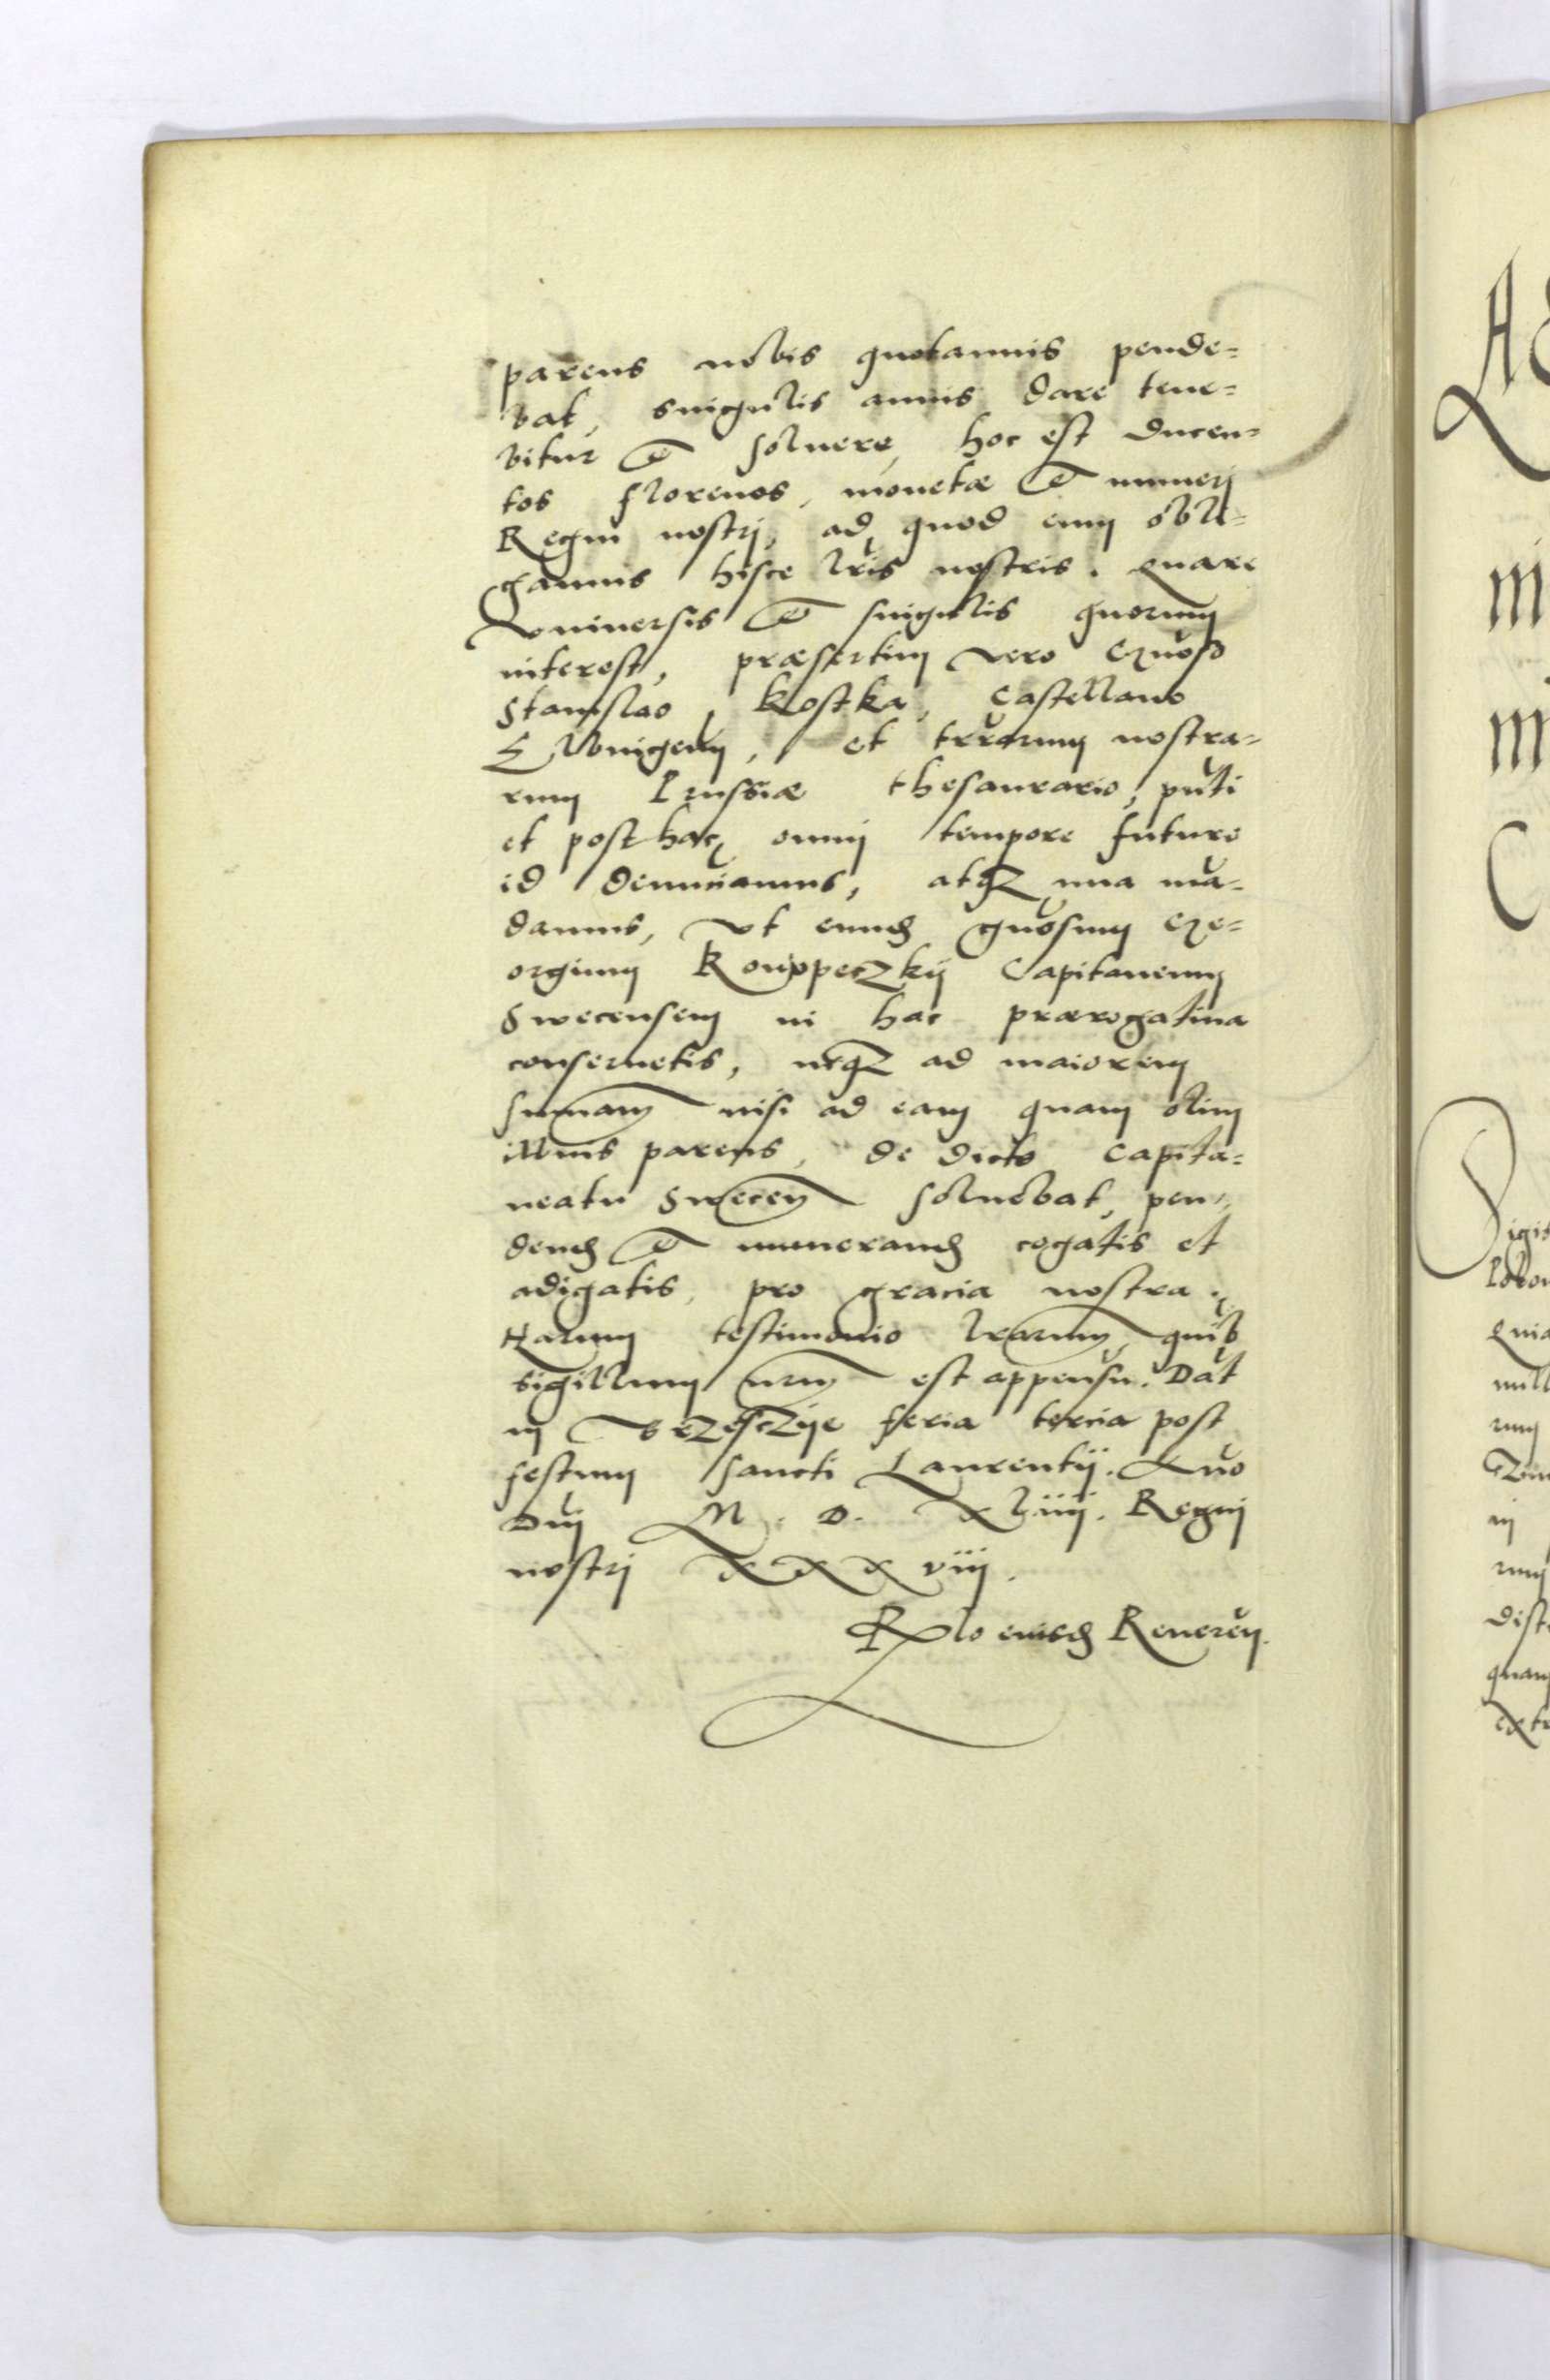 parens nobis quotannis pende=
bat, singulis annis dare tene=
bitur et soluere, hoc est ducen=
tos florenos, monetæ et numerj
Regni nostrj, ad quod eum obli=
gamus hisce lris nostris. Quare
vniuersis et singulis quorum
interest, præsertim vero Gnoso
Stanislao Kostka, Castellano
Elbingen, et terrarum nostra=
rum Prussiæ thesaurario, pnti
et posthac omnj tempore futuro
id denunciamus, atqz una man=
damus, vt eund gnosum Ge=
orgium Konopeczkij Capitaneum
Swecensem in hac prærogatiua
conseruetis, neqz ad maiorem
summam nisi ad eam quam olim
illius parens, de dicto Capita=
neatu Swecen soluebat, pen=
dend et numerand cogatis et
adigatis, pro gracia nostra.
Harum testimonio lrarum, quib
sigillum nrum est appensu. Dat
in Brzesczije feria tercia post
festum sancti Laurentij. Anno
Dnj M. D. xliiij. Regnj
nostrj xxxviij.
Rlo eiusd Reueren.
A
m
m
C
Digis
Quia
null
rum
in
rum
dist
quam
extr